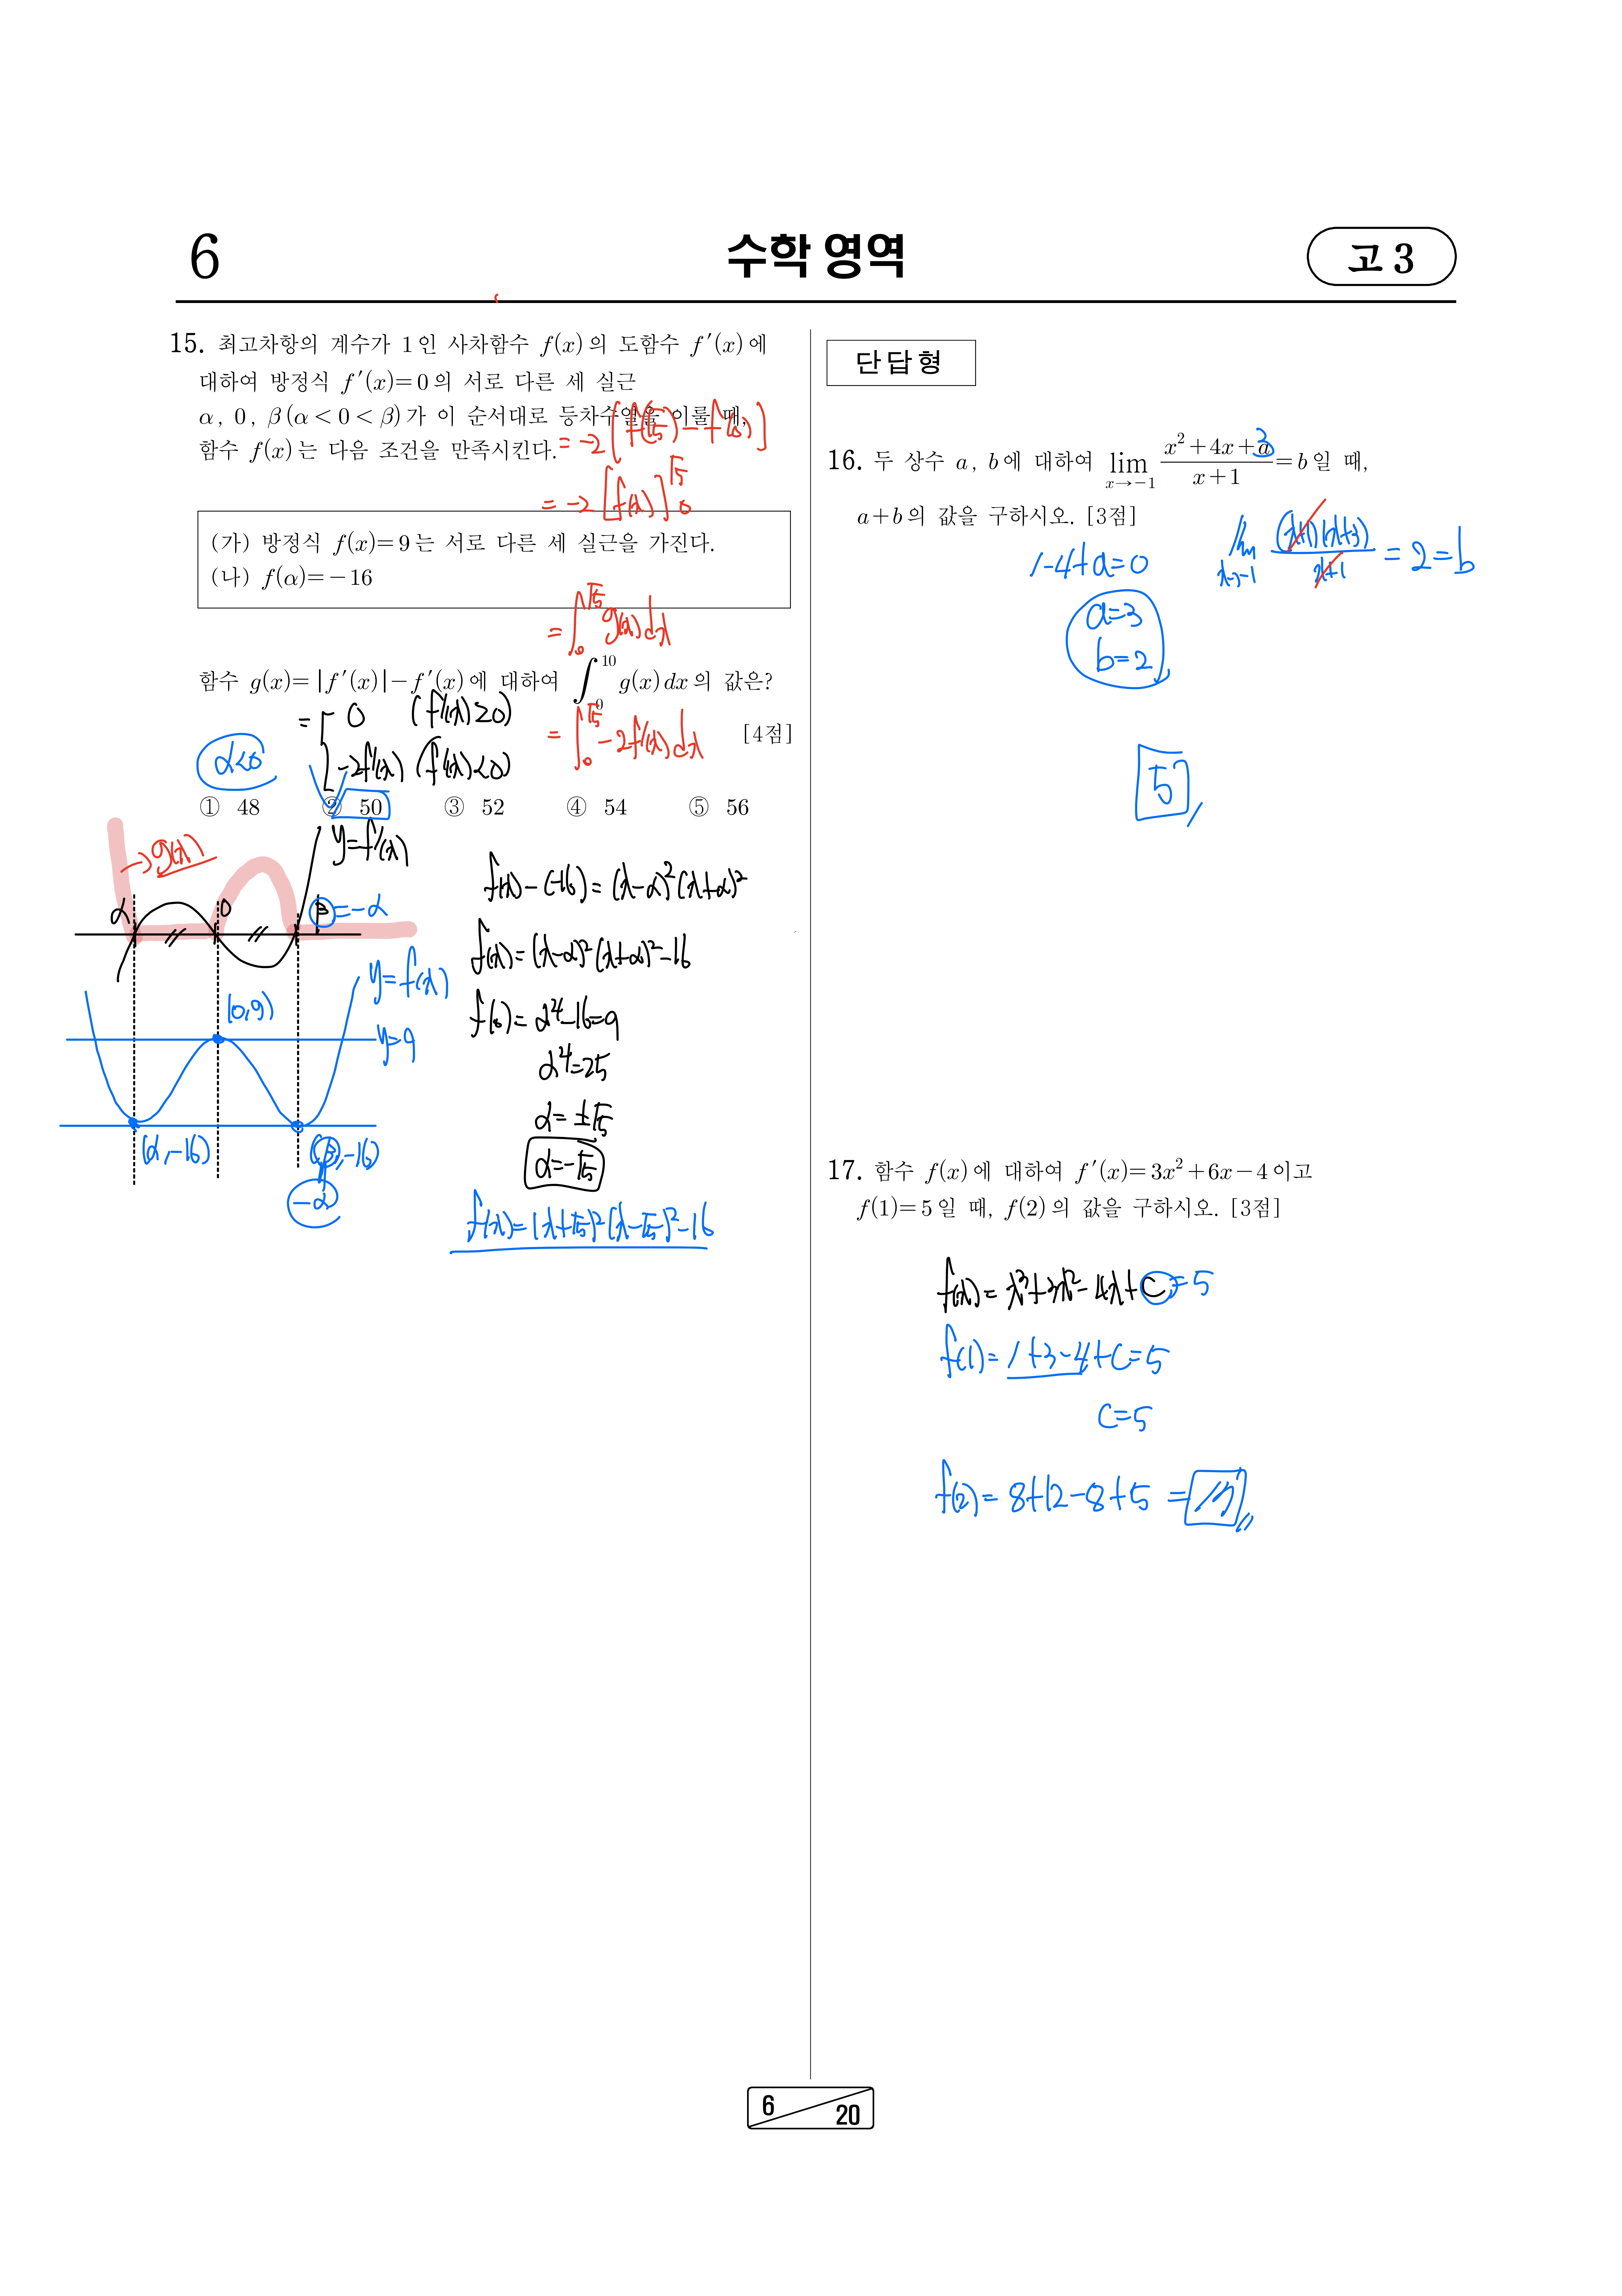 6
수학 영역
고 3
15. 최고차항의 계수가 1인 사차함수 f(x)의 도함수 f′(x)에
대하여 방정식 f′(x)=0의 서로 다른 세 실근
α, 0, β(α<0<β)가 이 순서대로 등차수열을 이룰 때,
함수 f(x)는 다음 조건을 만족시킨다.
= -2[f(√5)-f(0)]
= -2[f(x)]₀^√5
(가) 방정식 f(x)=9는 서로 다른 세 실근을 가진다.
(나) f(α)=-16
= ∫₀^√5 g(x)dx
함수 g(x)=|f′(x)|-f′(x)에 대하여 ∫₀^10 g(x)dx의 값은?
[4점]
= { 0 (f′(x)≥0)
-2f′(x) (f′(x)<0)
= ∫₀^√5 -2f′(x)dx
α<0
① 48 ② 50 ③ 52 ④ 54 ⑤ 56
→g(x)
y=f′(x)
α 0 β=-α
y=f(x)
(0,9)
y=9
(α,-16)
(β,-16)
-α
f(x)-(-16)=(x-α)²(x+α)²
f(x)=(x-α)²(x+α)²-16
f(0)=α⁴-16=9
α⁴=25
α=±√5
α=-√5
f(x)=(x+√5)²(x-√5)²-16
단답형
16. 두 상수 a, b에 대하여 lim x→-1 (x²+4x+a)/(x+1)=b일 때,
3
a+b의 값을 구하시오. [3점]
1-4+a=0
a=3
b=2
lim x→-1 (x+1)(x+3)/(x+1) = 2 = b
5
17. 함수 f(x)에 대하여 f′(x)=3x²+6x-4이고
f(1)=5일 때, f(2)의 값을 구하시오. [3점]
f(x)=x³+3x²-4x+C=5
f(1)=1+3-4+C=5
C=5
f(2)=8+12-8+5=17
6
20